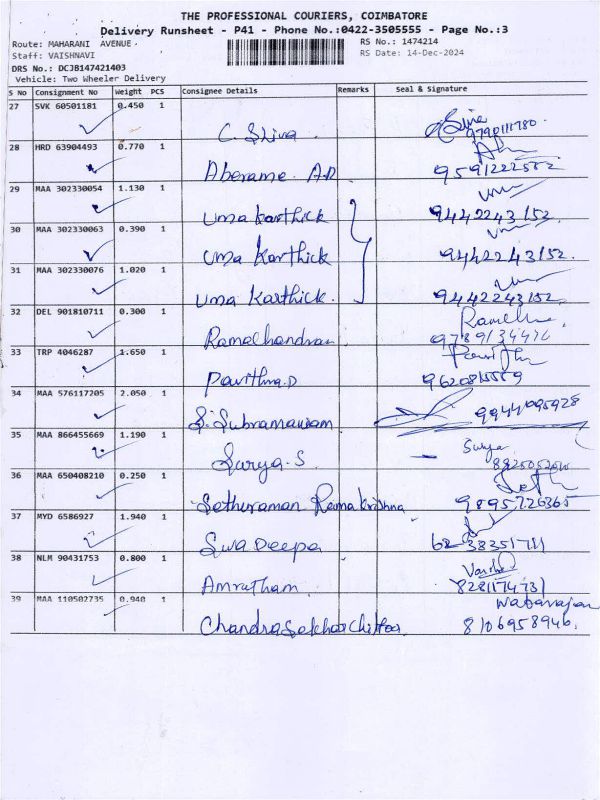 THE PROFESSIONAL COURIERS, COIMBATORE
Delivery Runsheet - P41 - Phone No.:0422-3505555 - Page No.:3
Route: MAHARANI AVENUE RS No.: 1474214
Staff: VAISHNAVI RS Date: 14-Dec-2024
DRS No.: DCJB147421403
Vehicle: Two Wheeler Delivery
S No Consignment No Weight PCS Consignee Details Remarks Seal & Signature
27 SVK 60501181 0.450 1
C. Shiva
28 HRD 63904493 0.770 1
Aberame. A.R
29 MAA 302330054 1.130 1
Uma Karthick 9442243152
30 MAA 302330063 0.390 1
Uma Karthick 9442243152
31 MAA 302330076 1.020 1
Uma Karthick 9442243152
32 DEL 901810711 0.300 1
Ramachandran
33 TRP 4046287 1.650 1
Pavithra.D
34 MAA 576117205 2.050 1
S. Subramaniam 9944095928
35 MAA 866455669 1.190 1
Surya
Surya.S
36 MAA 650408210 0.250 1
Sethuraman Ramakrishna 9895726365
37 MYD 6586927 1.940 1
Swa Deepa
38 NLM 90431753 0.800 1
Amrutham
39 MAA 110502735 0.940 1
Chandrasekhar Chittoor 8106958946